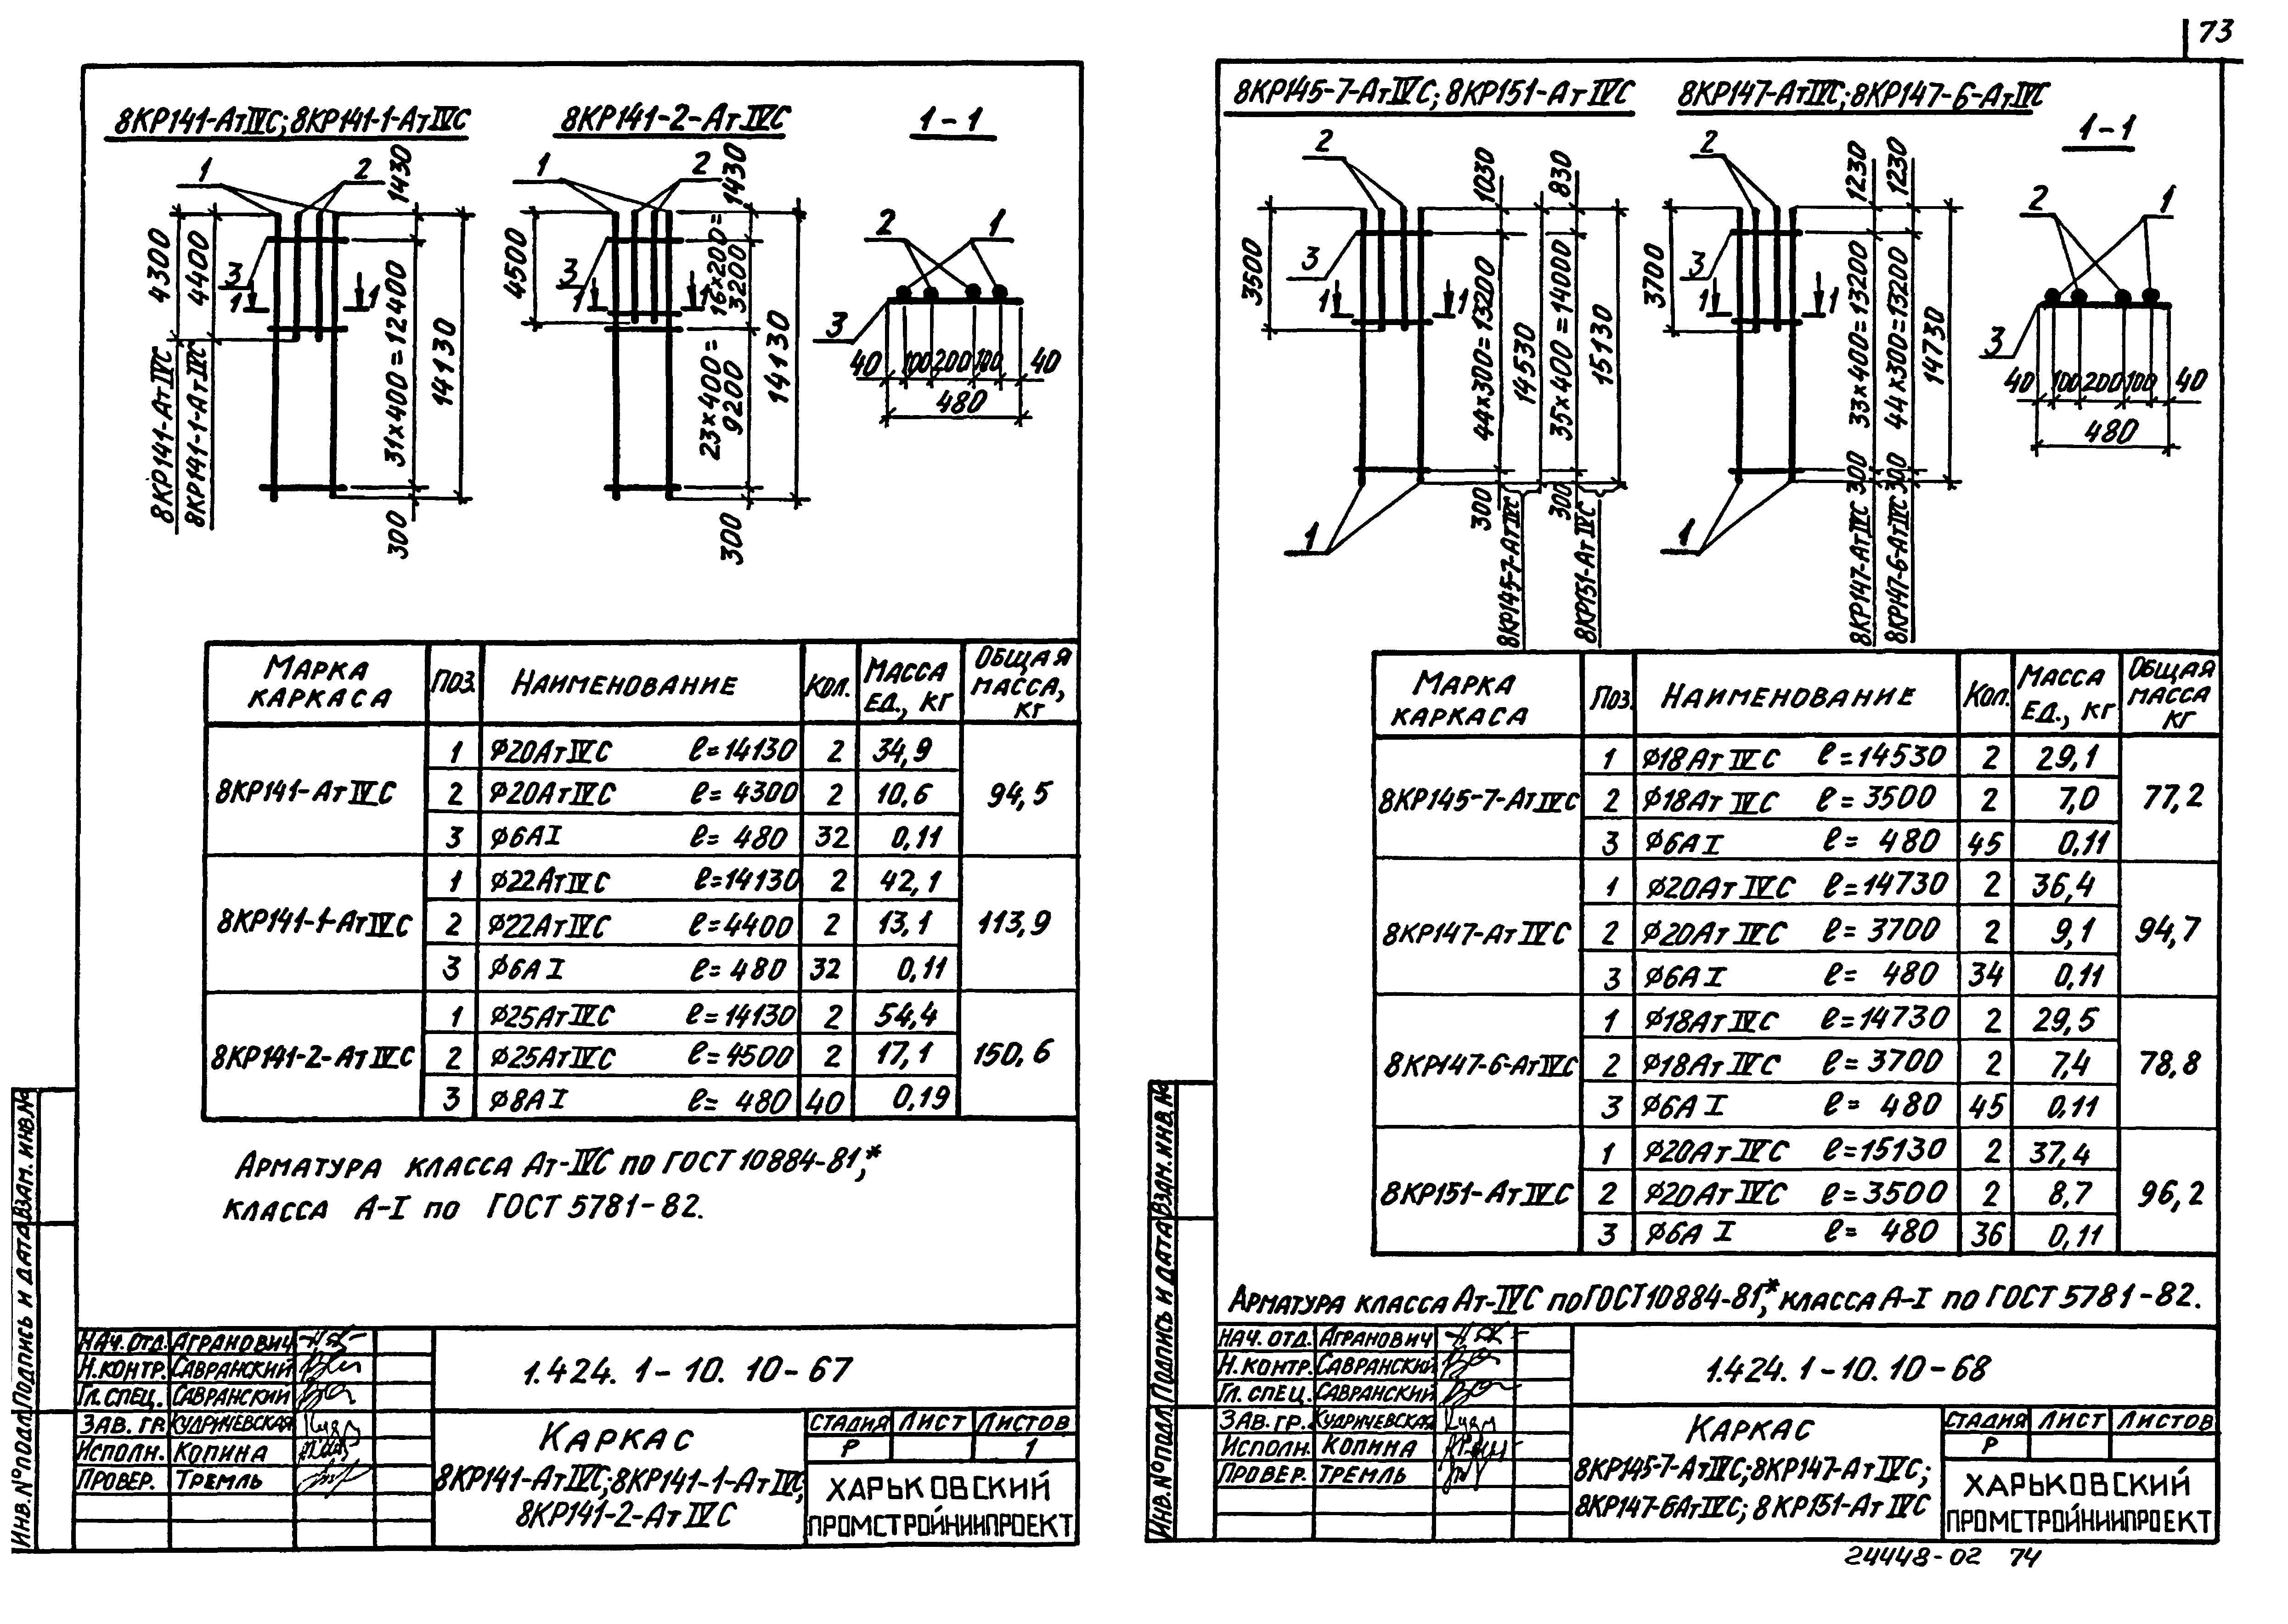 73
8КР141-АтIVС; 8КР141-1-АтIVС
8КР141-2-АтIVС
1-1
1
2
1430
4300
4400
3
1
1
31×400=12400
14130
300
8КР141-АтIVС
8КР141-1-АтIVС
1
2
1430
4500
3
1
1
16×200=
3200
23×400=
9200
14130
300
2
1
3
40
100
200
100
40
480
Марка
каркаса
Поз.
Наименование
Кол.
Масса
ед., кг
Общая
масса,
кг
8КР141-АтIVС
1 ϕ20АтIVС ℓ=14130 2 34,9
2 ϕ20АтIVС ℓ= 4300 2 10,6 94,5
3 ϕ6АI ℓ= 480 32 0,11
8КР141-1-АтIVС
1 ϕ22АтIVС ℓ=14130 2 42,1
2 ϕ22АтIVС ℓ=4400 2 13,1 113,9
3 ϕ6АI ℓ= 480 32 0,11
8КР141-2-АтIVС
1 ϕ25АтIVС ℓ=14130 2 54,4
2 ϕ25АтIVС ℓ=4500 2 17,1 150,6
3 ϕ8АI ℓ= 480 40 0,19
Арматура класса Ат-IVС по ГОСТ 10884-81,*
класса А-I по ГОСТ 5781-82.
Инв.№подл. Подпись и дата Взам. инв.№
Нач.отд. Агранович
Н.контр. Савранский
Гл.спец. Савранский
Зав. гр. Кудричевская
Исполн. Копина
Провер. Тремль
1.424. 1-10. 10-67
Каркас
8КР141-АтIVС; 8КР141-1-АтIVС;
8КР141-2-АтIVС
Стадия Лист Листов
Р 1
Харьковский
Промстройниипроект
8КР145-7-АтIVС; 8КР151-АтIVС
8КР147-АтIVС; 8КР147-6-АтIVС
1-1
2
1030
830
3500
3
1
1
44×300=13200
14530
35×400=14000
15130
300
300
1
8КР145-7-АтIVС
8КР151-АтIVС
2
1230
1230
3700
3
1
1
33×400=13200
44×300=13200
14730
300
300
1
8КР147-АтIVС
8КР147-6-АтIVС
2
1
3
40
100
200
100
40
480
Марка
каркаса
Поз.
Наименование
Кол.
Масса
ед., кг
Общая
масса
кг
8КР145-7-АтIVС
1 ϕ18АтIVС ℓ=14530 2 29,1
2 ϕ18АтIVС ℓ=3500 2 7,0 77,2
3 ϕ6АI ℓ= 480 45 0,11
8КР147-АтIVС
1 ϕ20АтIVС ℓ=14730 2 36,4
2 ϕ20АтIVС ℓ= 3700 2 9,1 94,7
3 ϕ6АI ℓ= 480 34 0,11
8КР147-6-АтIVС
1 ϕ18АтIVС ℓ=14730 2 29,5
2 ϕ18АтIVС ℓ= 3700 2 7,4 78,8
3 ϕ6АI ℓ= 480 45 0,11
8КР151-АтIVС
1 ϕ20АтIVС ℓ=15130 2 37,4
2 ϕ20АтIVС ℓ=3500 2 8,7 96,2
3 ϕ6А I ℓ= 480 36 0,11
Арматура класса Ат-IVС по ГОСТ 10884-81,* класса А-I по ГОСТ 5781-82.
Инв.№подл. Подпись и дата Взам.инв.№
Нач. отд. Агранович
Н.контр. Савранский
Гл. спец. Савранский
Зав. гр. Кудричевская
Исполн. Копина
Провер. Тремль
1.424. 1-10. 10-68
Каркас
8КР145-7-АтIVС; 8КР147-АтIVС;
8КР147-6АтIVС; 8КР151-АтIVС
Стадия Лист Листов
Р
Харьковский
Промстройниипроект
24448-02 74